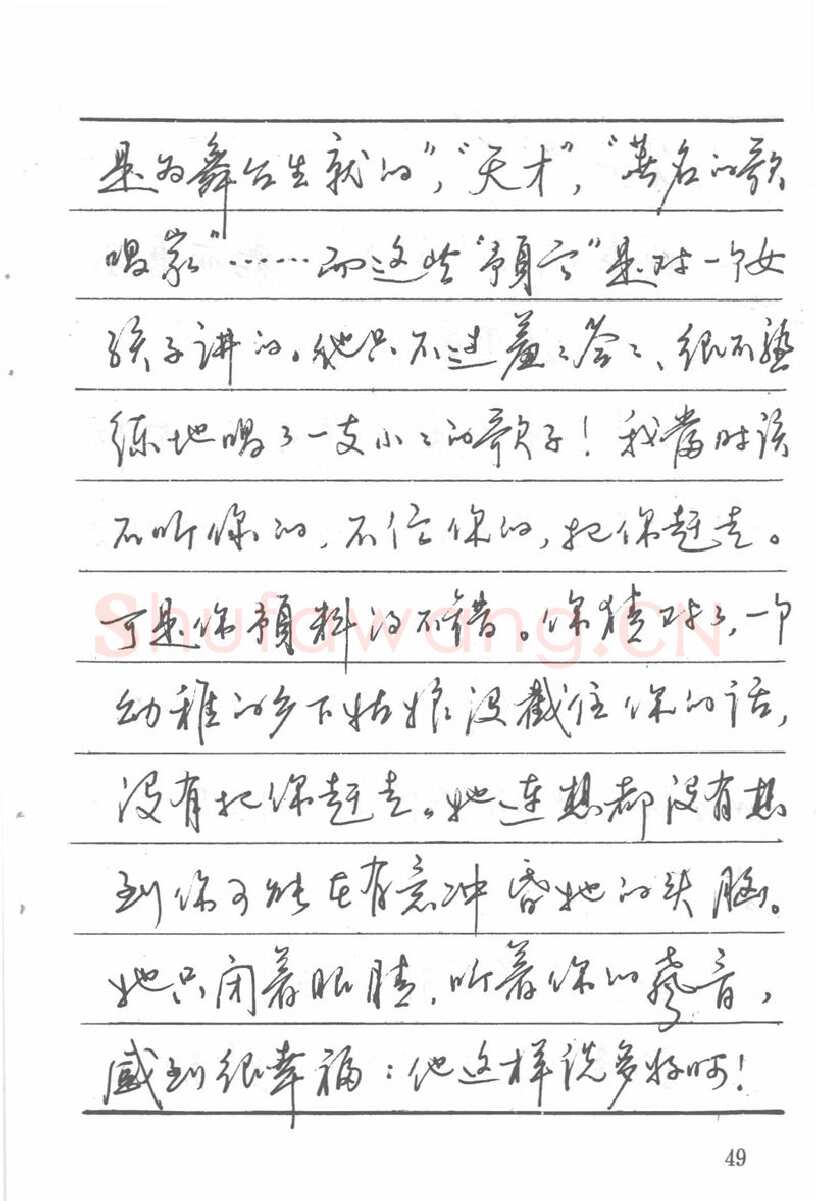 是为舞台生就的”，“天才”，“著名的歌
唱家”……而这些“預言”是对一个女
孩子讲的。她只不过羞羞答答、很不熟
练地唱了一支小小的歌子！我當时該
不听你的，不信你的，把你赶走。
可是你預料得不错。你猜对了，一个
幼稚的乡下姑娘没截住你的话，
没有把你赶走。她连想都没有想
到你可能在有意冲昏她的头脑。
她只闭着眼睛，听着你的聲音，
感到很幸福：他这样说多好啊！
Shufawang.CN
49